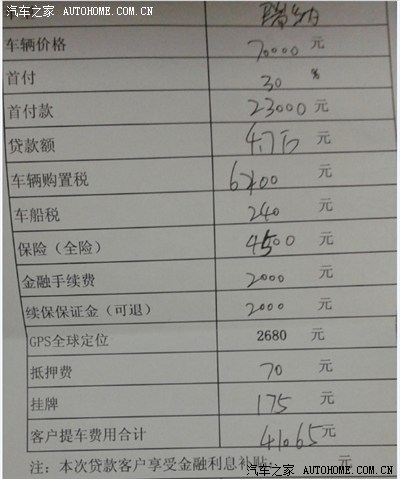 汽车之家 AUTOHOME.COM.CN
瑞纳
车辆价格 70000 元
首付 30 %
首付款 23000 元
贷款额 4.7万 元
车辆购置税 6200 元
车船税 240 元
保险（全险） 4500 元
金融手续费 2000 元
续保保证金（可退） 2000 元
GPS全球定位 2680 元
抵押费 70 元
挂牌 175 元
客户提车费用合计 41065 元
注：本次贷款客户享受金融利息补贴: 元
汽车之家 AUTOHOME.COM.CN